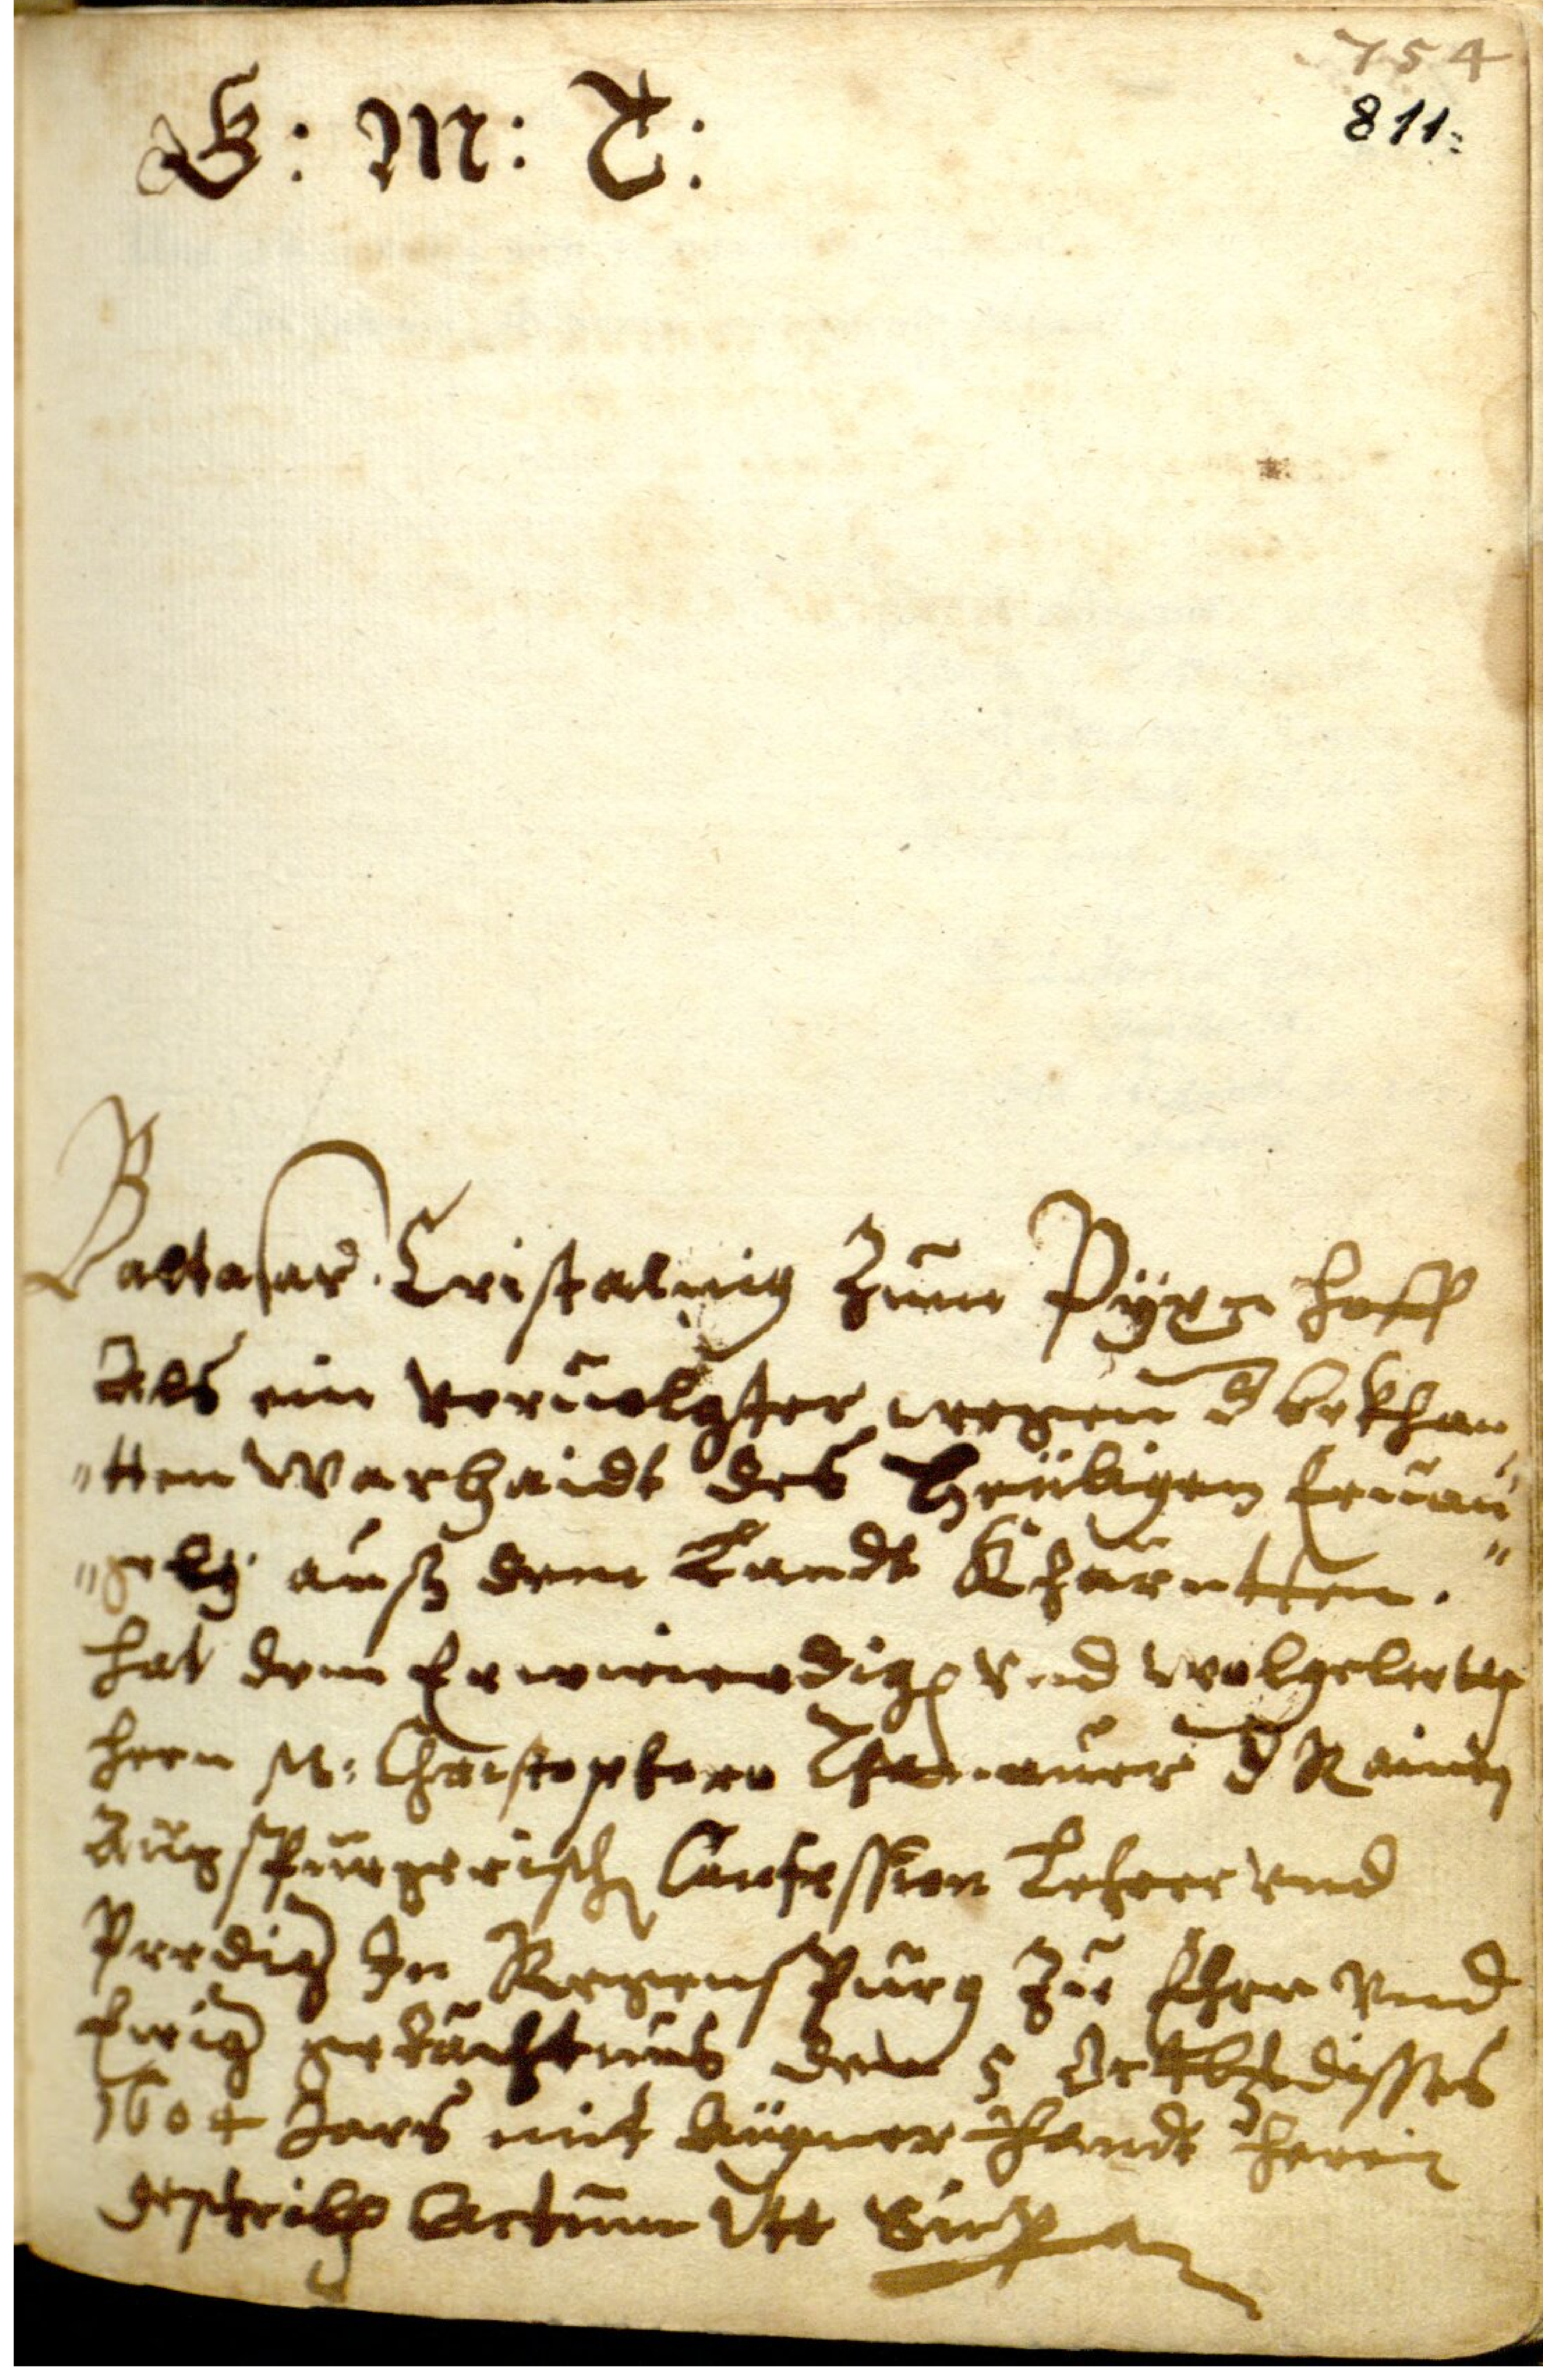 754
811.
G: M: T:
Baltasar Cristalnig Zum Pÿrg hoff
Als ein veruolgter wegen d bekhan
"tten Warhaidt des Heÿligen Euan"
"gelÿ auß dem Landt Khärntten.
hat dem Erwierdigen vnd wolgelertten
hern M: Christophero d Rainen
Augspurgerischen Confession Lehrer vnd
Predig In Regenspurg Zu Ehrn vnd
Ewig gedächtnus den 5 Octtb disses
1604 Jars mit aÿgner Handt herein
geschriben Actum Vtt Supra